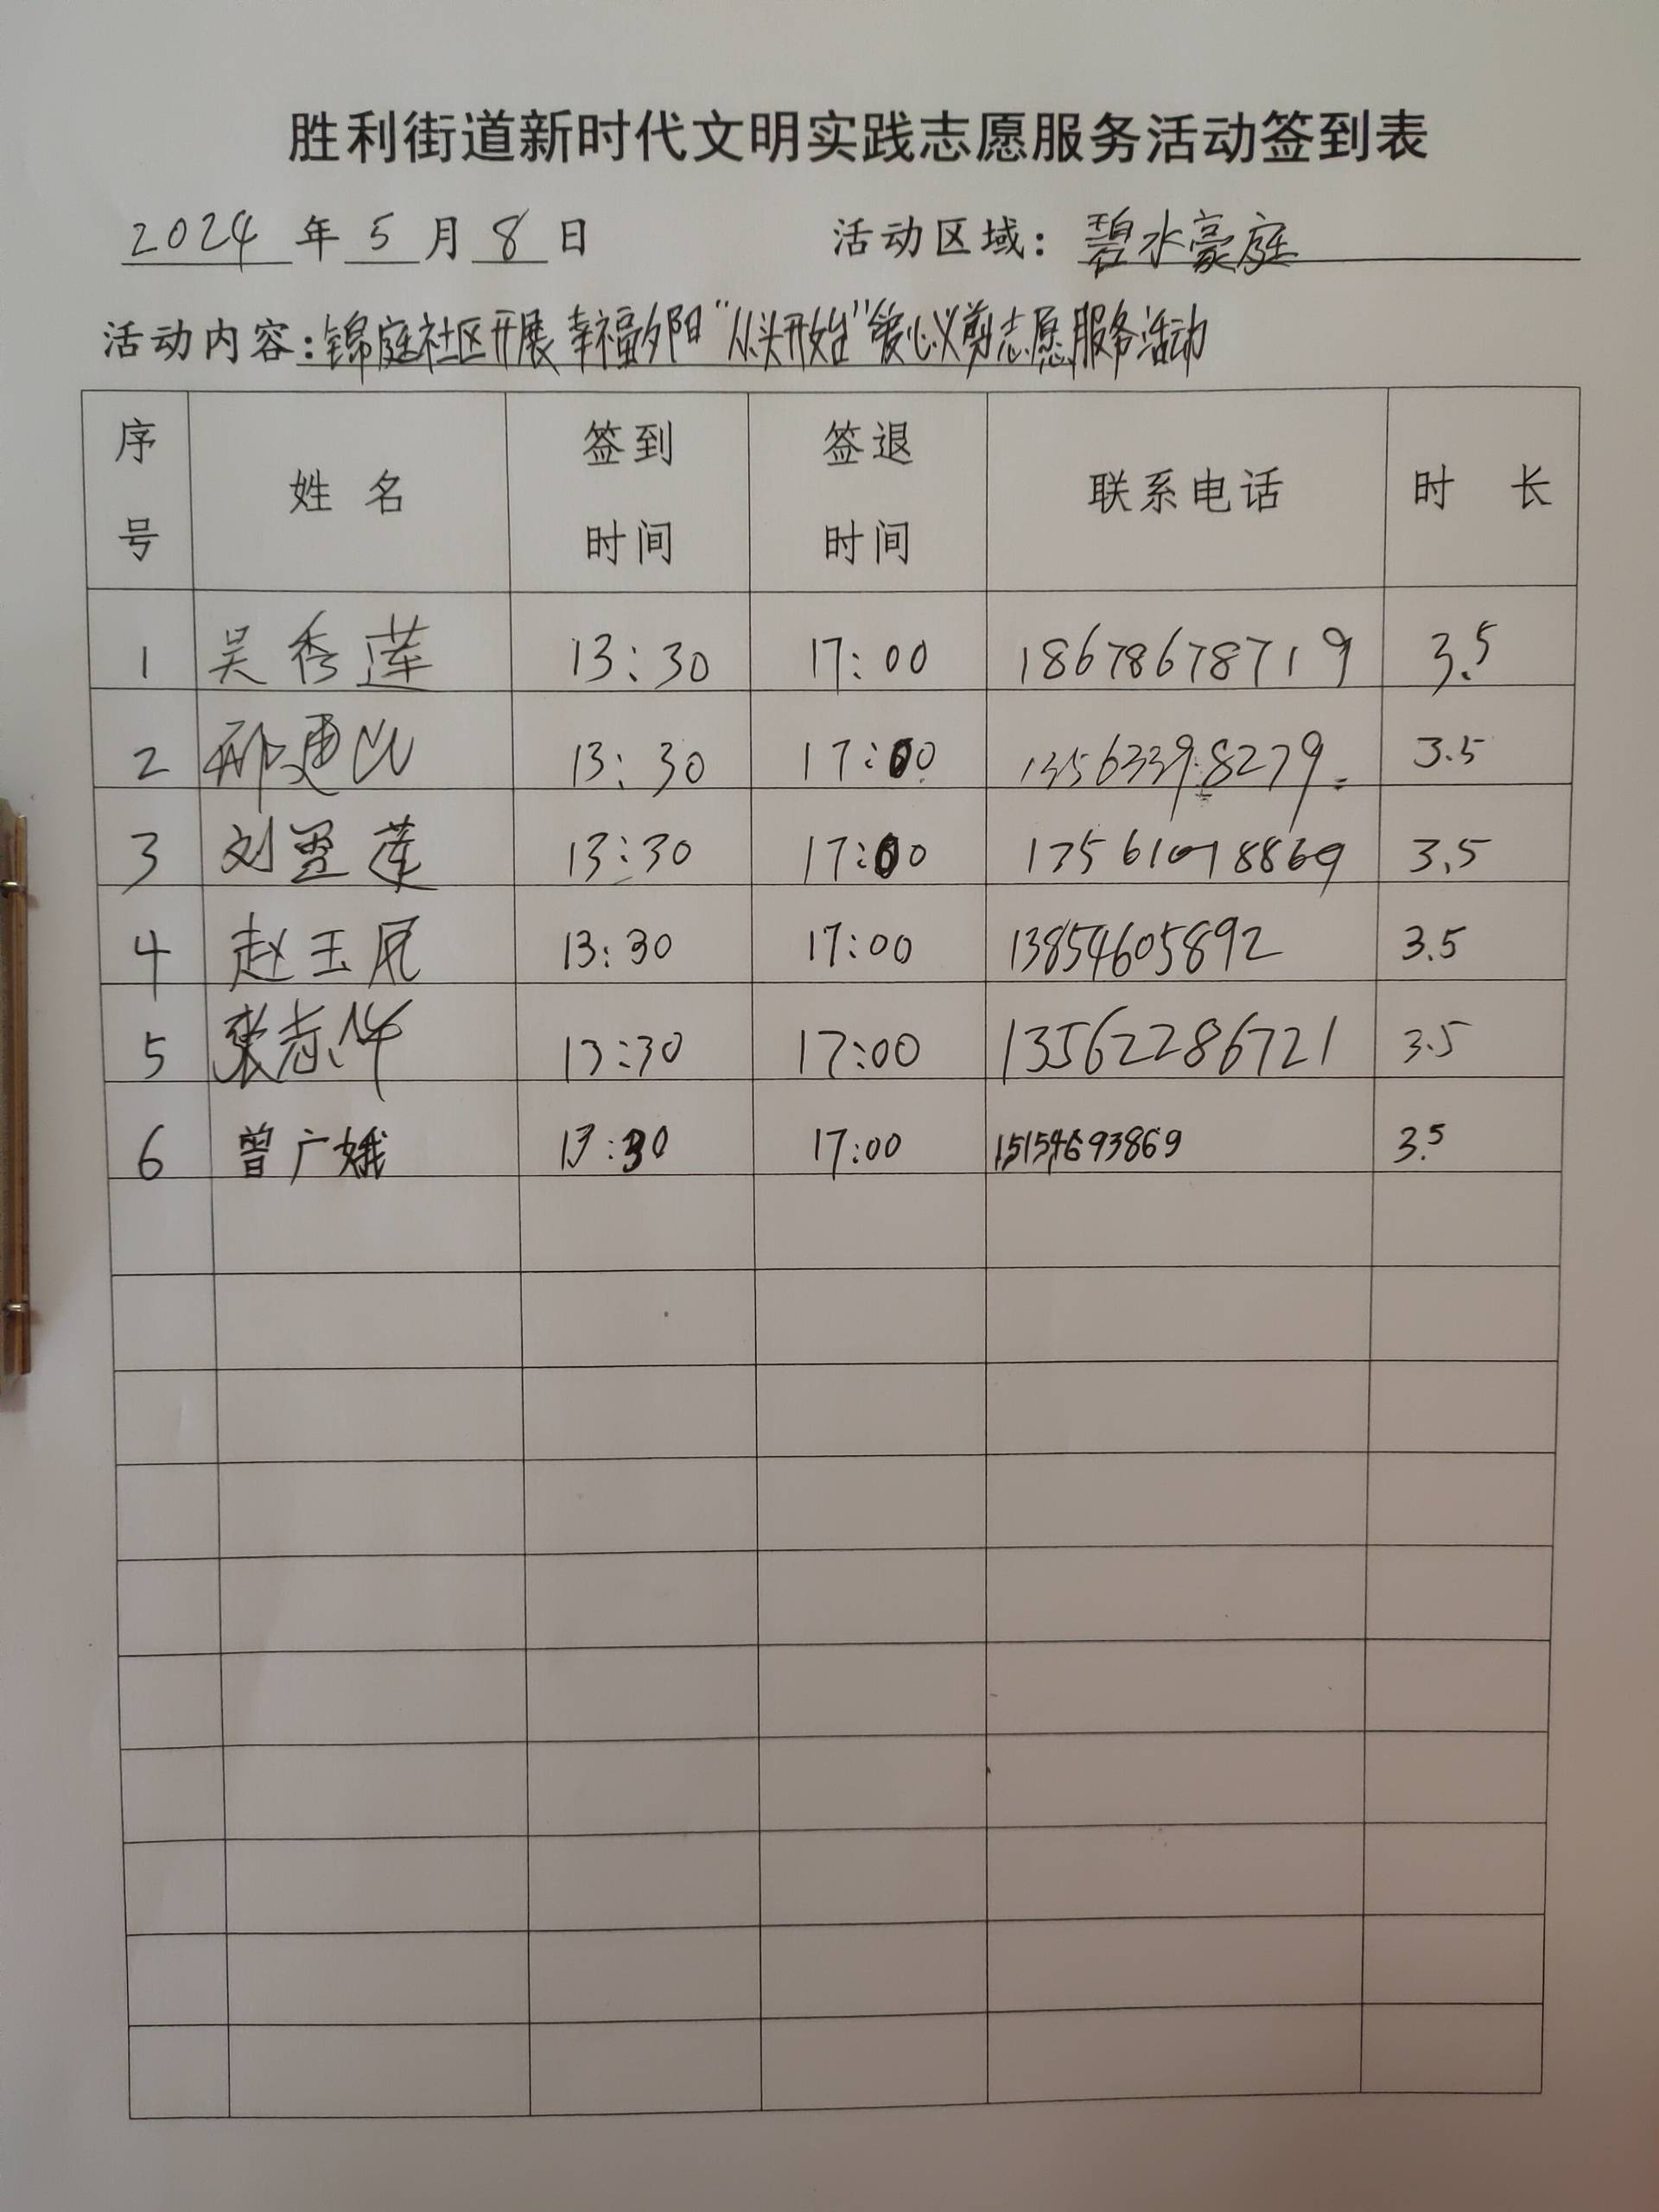 胜利街道新时代文明实践志愿服务活动签到表
2024 年 5 月 8 日 活动区域：碧水豪庭
活动内容：锦庭社区开展幸福夕阳“从头开始”爱心义剪志愿服务活动
序号 姓名 签到时间 签退时间 联系电话 时长
1 吴秀莲 13:30 17:00 18678678719 3.5
2 邢建 13:30 17:00 13563398279 3.5
3 刘 莲 13:30 17:00 3.5
4 赵玉凤 13:30 17:00 13854605892 3.5
5 张志华 13:30 17:00 13562286721 3.5
6 曾广娥 13:30 17:00 15154693869 3.5